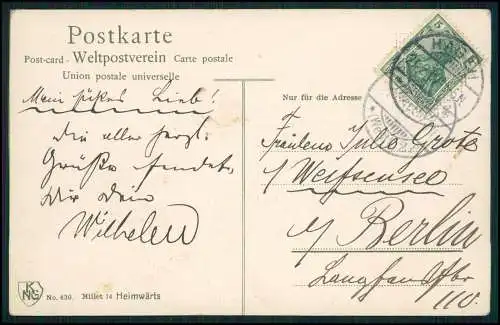 Postkarte
Post-card - Weltpostverein Carte postale
Union postale universelle
Mein süßes Lieb!
Die aller herzl.
Grüße sendet
Dir Dein
Wilhelm
Nur für die Adresse
HAGEN
5
Fräulein Julie Grote
Weißensee
Berlin
KNG
No. 430. Millet 14 Heimwärts